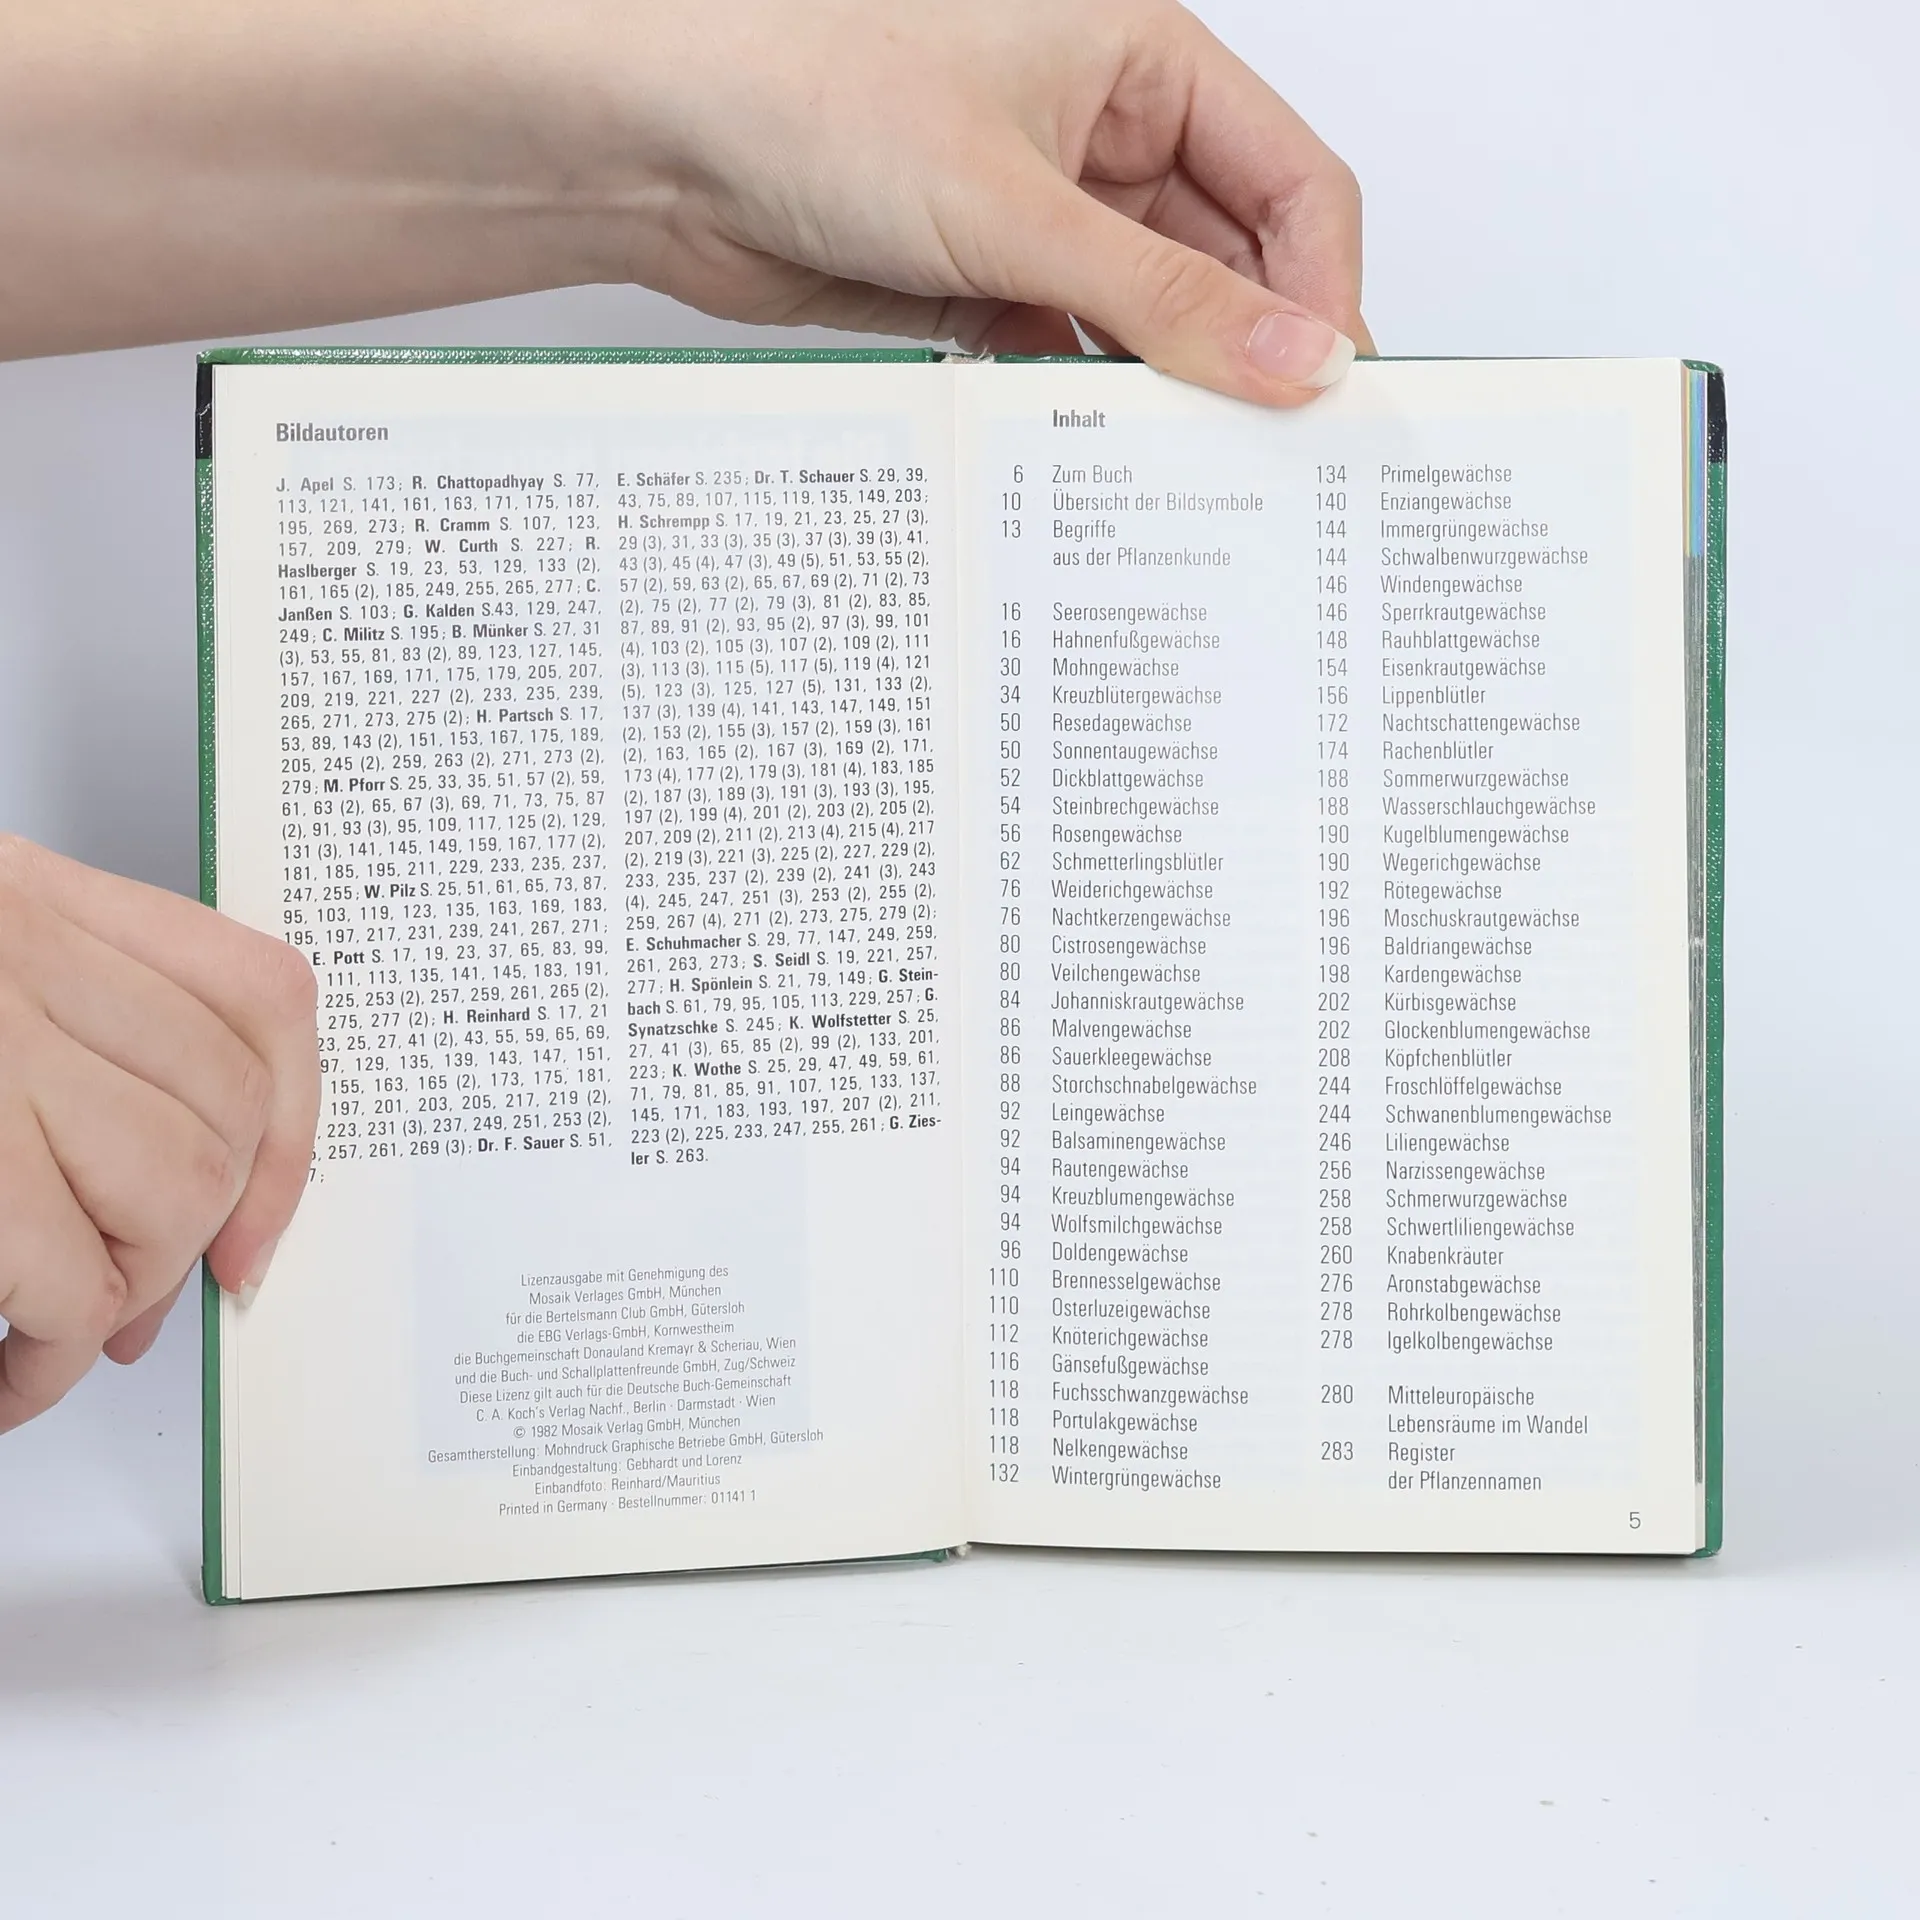 Bildautoren
J. Apel S. 173; R. Chattopadhyay S. 77,
113, 121, 141, 161, 163, 171, 175, 187,
195, 269, 273; R. Cramm S. 107, 123,
157, 209, 279; W. Curth S. 227; R.
Haslberger S. 19, 23, 53, 129, 133 (2),
161, 165 (2), 185, 249, 255, 265, 277; C.
Janßen S. 103; G. Kalden S.43, 129, 247,
249; C. Militz S. 195; B. Münker S. 27, 31
(3), 53, 55, 81, 83 (2), 89, 123, 127, 145,
157, 167, 169, 171, 175, 179, 205, 207,
209, 219, 221, 227 (2), 233, 235, 239,
265, 271, 273, 275 (2); H. Partsch S. 17,
53, 89, 143 (2), 151, 153, 167, 175, 189,
205, 245 (2), 259, 263 (2), 271, 273 (2),
279; M. Pforr S. 25, 33, 35, 51, 57 (2), 59,
61, 63 (2), 65, 67 (3), 69, 71, 73, 75, 87
(2), 91, 93 (3), 95, 109, 117, 125 (2), 129,
131 (3), 141, 145, 149, 159, 167, 177 (2),
181, 185, 195, 211, 229, 233, 235, 237,
247, 255; W. Pilz S. 25, 51, 61, 65, 73, 87,
95, 103, 119, 123, 135, 163, 169, 183,
195, 197, 217, 231, 239, 241, 267, 271;
E. Pott S. 17, 19, 23, 37, 65, 83, 99,
111, 113, 135, 141, 145, 183, 191,
225, 253 (2), 257, 259, 261, 265 (2),
275, 277 (2); H. Reinhard S. 17, 21
23, 25, 27, 41 (2), 43, 55, 59, 65, 69,
97, 129, 135, 139, 143, 147, 151,
155, 163, 165 (2), 173, 175, 181,
197, 201, 203, 205, 217, 219 (2),
, 223, 231 (3), 237, 249, 251, 253 (2),
, 257, 261, 269 (3); Dr. F. Sauer S. 51,
7;
E. Schäfer S. 235; Dr. T. Schauer S. 29, 39,
43, 75, 89, 107, 115, 119, 135, 149, 203;
H. Schrempp S. 17, 19, 21, 23, 25, 27 (3),
29 (3), 31, 33 (3), 35 (3), 37 (3), 39 (3), 41,
43 (3), 45 (4), 47 (3), 49 (5), 51, 53, 55 (2),
57 (2), 59, 63 (2), 65, 67, 69 (2), 71 (2), 73
(2), 75 (2), 77 (2), 79 (3), 81 (2), 83, 85,
87, 89, 91 (2), 93, 95 (2), 97 (3), 99, 101
(4), 103 (2), 105 (3), 107 (2), 109 (2), 111
(3), 113 (3), 115 (5), 117 (5), 119 (4), 121
(5), 123 (3), 125, 127 (5), 131, 133 (2),
137 (3), 139 (4), 141, 143, 147, 149, 151
(2), 153 (2), 155 (3), 157 (2), 159 (3), 161
(2), 163, 165 (2), 167 (3), 169 (2), 171,
173 (4), 177 (2), 179 (3), 181 (4), 183, 185
(2), 187 (3), 189 (3), 191 (3), 193 (3), 195,
197 (2), 199 (4), 201 (2), 203 (2), 205 (2),
207, 209 (2), 211 (2), 213 (4), 215 (4), 217
(2), 219 (3), 221 (3), 225 (2), 227, 229 (2),
233, 235, 237 (2), 239 (2), 241 (3), 243
(4), 245, 247, 251 (3), 253 (2), 255 (2),
259, 267 (4), 271 (2), 273, 275, 279 (2);
E. Schuhmacher S. 29, 77, 147, 249, 259,
261, 263, 273; S. Seidl S. 19, 221, 257,
277; H. Spönlein S. 21, 79, 149; G. Stein-
bach S. 61, 79, 95, 105, 113, 229, 257; G.
Synatzschke S. 245; K. Wolfstetter S. 25,
27, 41 (3), 65, 85 (2), 99 (2), 133, 201,
223; K. Wothe S. 25, 29, 47, 49, 59, 61,
71, 79, 81, 85, 91, 107, 125, 133, 137,
145, 171, 183, 193, 197, 207 (2), 211,
223 (2), 225, 233, 247, 255, 261; G. Zies-
ler S. 263.
Lizenzausgabe mit Genehmigung des
Mosaik Verlages GmbH, München
für die Bertelsmann Club GmbH, Gütersloh
die EBG Verlags-GmbH, Kornwestheim
die Buchgemeinschaft Donauland Kremayr & Scheriau, Wien
und die Buch- und Schallplattenfreunde GmbH, Zug/Schweiz
Diese Lizenz gilt auch für die Deutsche Buch-Gemeinschaft
C. A. Koch's Verlag Nachf., Berlin · Darmstadt · Wien
© 1982 Mosaik Verlag GmbH, München
Gesamtherstellung: Mohndruck Graphische Betriebe GmbH, Gütersloh
Einbandgestaltung: Gebhardt und Lorenz
Einbandfoto: Reinhard/Mauritius
Printed in Germany · Bestellnummer: 01141 1
Inhalt
6 Zum Buch
10 Übersicht der Bildsymbole
13 Begriffe
aus der Pflanzenkunde
16 Seerosengewächse
16 Hahnenfußgewächse
30 Mohngewächse
34 Kreuzblütergewächse
50 Resedagewächse
50 Sonnentaugewächse
52 Dickblattgewächse
54 Steinbrechgewächse
56 Rosengewächse
62 Schmetterlingsblütler
76 Weiderichgewächse
76 Nachtkerzengewächse
80 Cistrosengewächse
80 Veilchengewächse
84 Johanniskrautgewächse
86 Malvengewächse
86 Sauerkleegewächse
88 Storchschnabelgewächse
92 Leingewächse
92 Balsaminengewächse
94 Rautengewächse
94 Kreuzblumengewächse
94 Wolfsmilchgewächse
96 Doldengewächse
110 Brennesselgewächse
110 Osterluzeigewächse
112 Knöterichgewächse
116 Gänsefußgewächse
118 Fuchsschwanzgewächse
118 Portulakgewächse
118 Nelkengewächse
132 Wintergrüngewächse
134 Primelgewächse
140 Enziangewächse
144 Immergrüngewächse
144 Schwalbenwurzgewächse
146 Windengewächse
146 Sperrkrautgewächse
148 Rauhblattgewächse
154 Eisenkrautgewächse
156 Lippenblütler
172 Nachtschattengewächse
174 Rachenblütler
188 Sommerwurzgewächse
188 Wasserschlauchgewächse
190 Kugelblumengewächse
190 Wegerichgewächse
192 Rötegewächse
196 Moschuskrautgewächse
196 Baldriangewächse
198 Kardengewächse
202 Kürbisgewächse
202 Glockenblumengewächse
208 Köpfchenblütler
244 Froschlöffelgewächse
244 Schwanenblumengewächse
246 Liliengewächse
256 Narzissengewächse
258 Schmerwurzgewächse
258 Schwertliliengewächse
260 Knabenkräuter
276 Aronstabgewächse
278 Rohrkolbengewächse
278 Igelkolbengewächse
280 Mitteleuropäische
Lebensräume im Wandel
283 Register
der Pflanzennamen
5